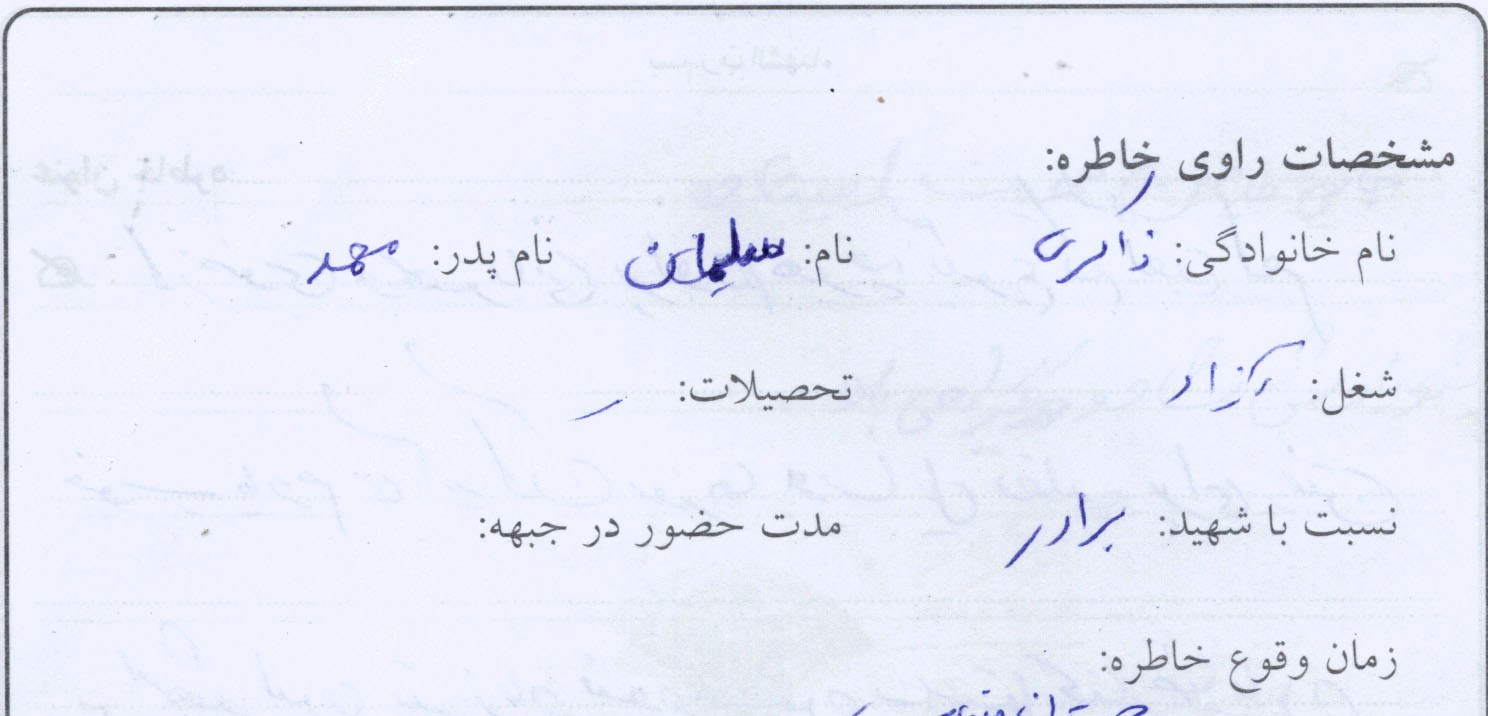 مشخصات راوی خاطره:
نام خانوادگی: ذاکری نام: سلیمان نام پدر: محمد
شغل: آزاد تحصیلات:
نسبت با شهید: برادر مدت حضور در جبهه:
زمان وقوع خاطره: